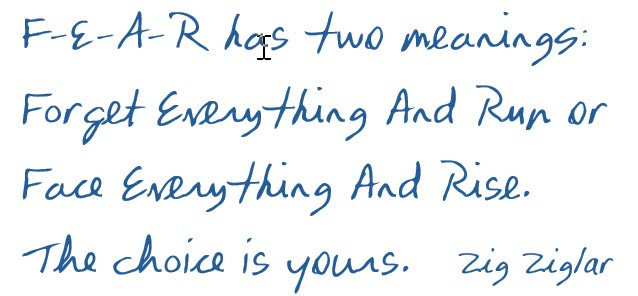 F-E-A-R has two meanings:
Forget Everything And Run or
Face Everything And Rise.
The choice is yours. Zig Ziglar